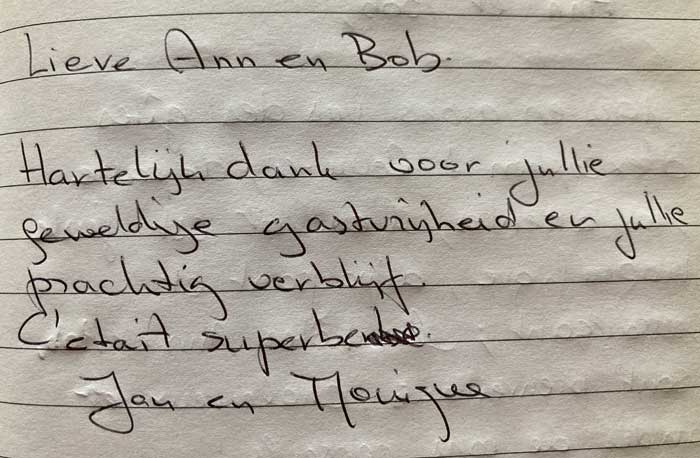 Lieve Ann en Bob.
Hartelijk dank voor jullie
geweldige gastvrijheid en jullie
prachtig verblijf.
C'etait superbe.
Jan en Monique